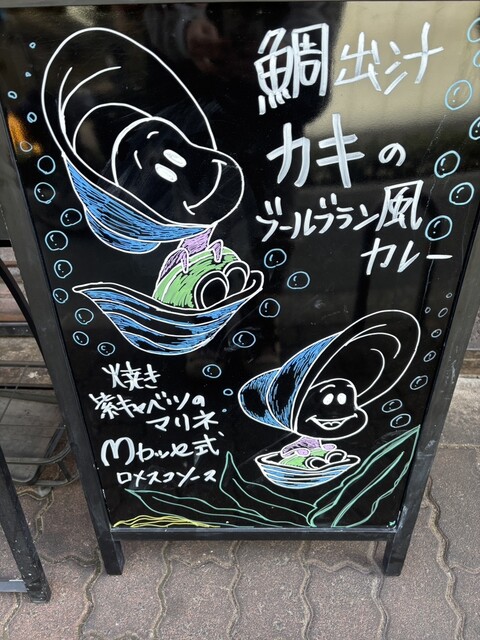 鯛出汁
カキの
ブールブラン風
カレー
焼き
紫キャベツの
マリネ
Mカッセ式
ロメスコソース